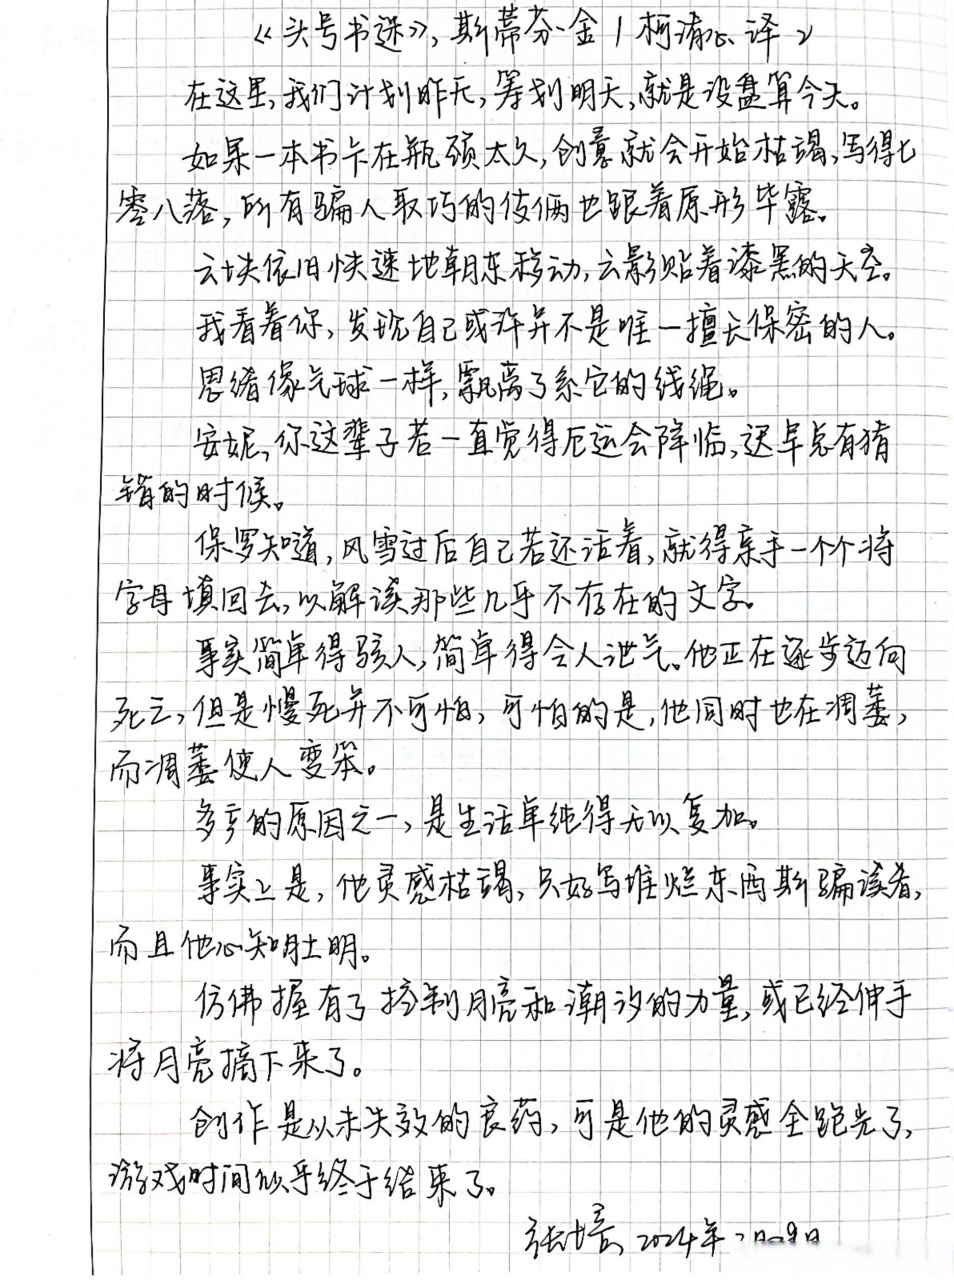 《头号书迷》,斯蒂芬·金/柯清心 译
在这里,我们计划昨天,筹划明天,就是没盘算今天。
如果一本书卡在瓶颈太久,创意就会开始枯竭,写得七
零八落,所有骗人取巧的伎俩也跟着原形毕露。
云块依旧快速地朝东移动,云影贴着漆黑的天空。
我看着你,发现自己或许并不是唯一擅长保密的人。
思绪像气球一样,飘离了系它的线绳。
安妮,你这辈子若一直觉得厄运会降临,迟早总有猜
错的时候。
保罗知道,风雪过后自己若还活着,就得亲手一个个将
字母填回去,以解读那些几乎不存在的文字。
事实简单得骇人,简单得令人泄气。他正在逐步迈向
死亡,但是慢死并不可怕,可怕的是,他同时也在凋萎,
而凋萎使人变笨。
多产的原因之一,是生活单纯得无以复加。
事实上是,他灵感枯竭,只好写堆烂东西欺骗读者,
而且他心知肚明。
仿佛握有了控制月亮和潮汐的力量,或已经伸手
将月亮摘下来了。
创作是从未失效的良药,可是他的灵感全跑光了,
游戏时间似乎终于结束了。
张培 2024年 月9日